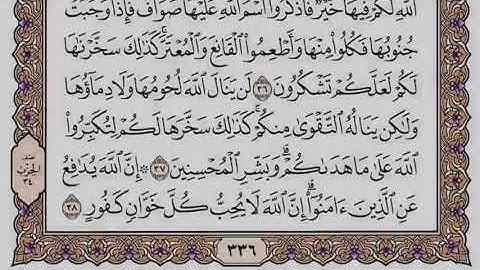 اللَّهِ لَكُمْ فِيهَا خَيْرٌ ۖ فَاذْكُرُوا اسْمَ اللَّهِ عَلَيْهَا صَوَافَّ ۖ فَإِذَا وَجَبَتْ
جُنُوبُهَا فَكُلُوا مِنْهَا وَأَطْعِمُوا الْقَانِعَ وَالْمُعْتَرَّ ۚ كَذَٰلِكَ سَخَّرْنَاهَا
لَكُمْ لَعَلَّكُمْ تَشْكُرُونَ ٣٦ لَن يَنَالَ اللَّهَ لُحُومُهَا وَلَا دِمَاؤُهَا
وَلَٰكِن يَنَالُهُ التَّقْوَىٰ مِنكُمْ ۚ كَذَٰلِكَ سَخَّرَهَا لَكُمْ لِتُكَبِّرُوا
اللَّهَ عَلَىٰ مَا هَدَىٰكُمْ ۗ وَبَشِّرِ الْمُحْسِنِينَ ٣٧ ۞ إِنَّ اللَّهَ يُدَافِعُ
عَنِ الَّذِينَ ءَامَنُوا ۗ إِنَّ اللَّهَ لَا يُحِبُّ كُلَّ خَوَّانٍ كَفُورٍ ٣٨
نصف
الحزب
٣٤
٣٣٦